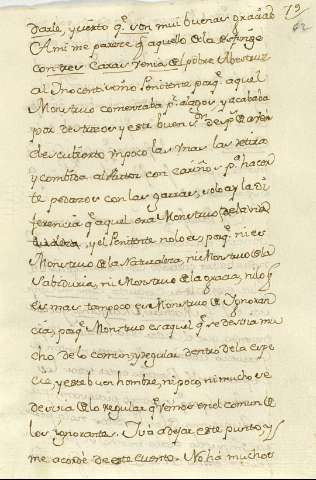 darle, y cierto q.e son mui buenas
A mi me parece q.e aquello de la
con tres Caras venia el pobre
al Inocentissimo Penitente porq.e aquel
Monstruo comenzaba p.r y acababa
por destrozos y este buen S.or despues
descubierto un poco las las retira
y combida al Lector con cariño p.a hacer
te pedazos con las garras, solo ay la di
ferencia q.e aquel era Monstruo
y el Penitente no lo es, porq.e ni es
Monstruo de la Naturaleza, ni Monstruo de la
Sabiduria, ni Monstruo de la gracia, ni lo q.e
es mas tampoco es Monstruo de Ignoran
cia, porq.e Monstruo es aquel q.e se desvia mu
cho de lo comun, y regular dentro de la espe
cie, y este buen hombre, ni poco, ni mucho se
desvia de lo regular q.e vemos en el comun de
los ignorantes. Iva a dejar este punto, y
me acorde de este cuento. No há muchos